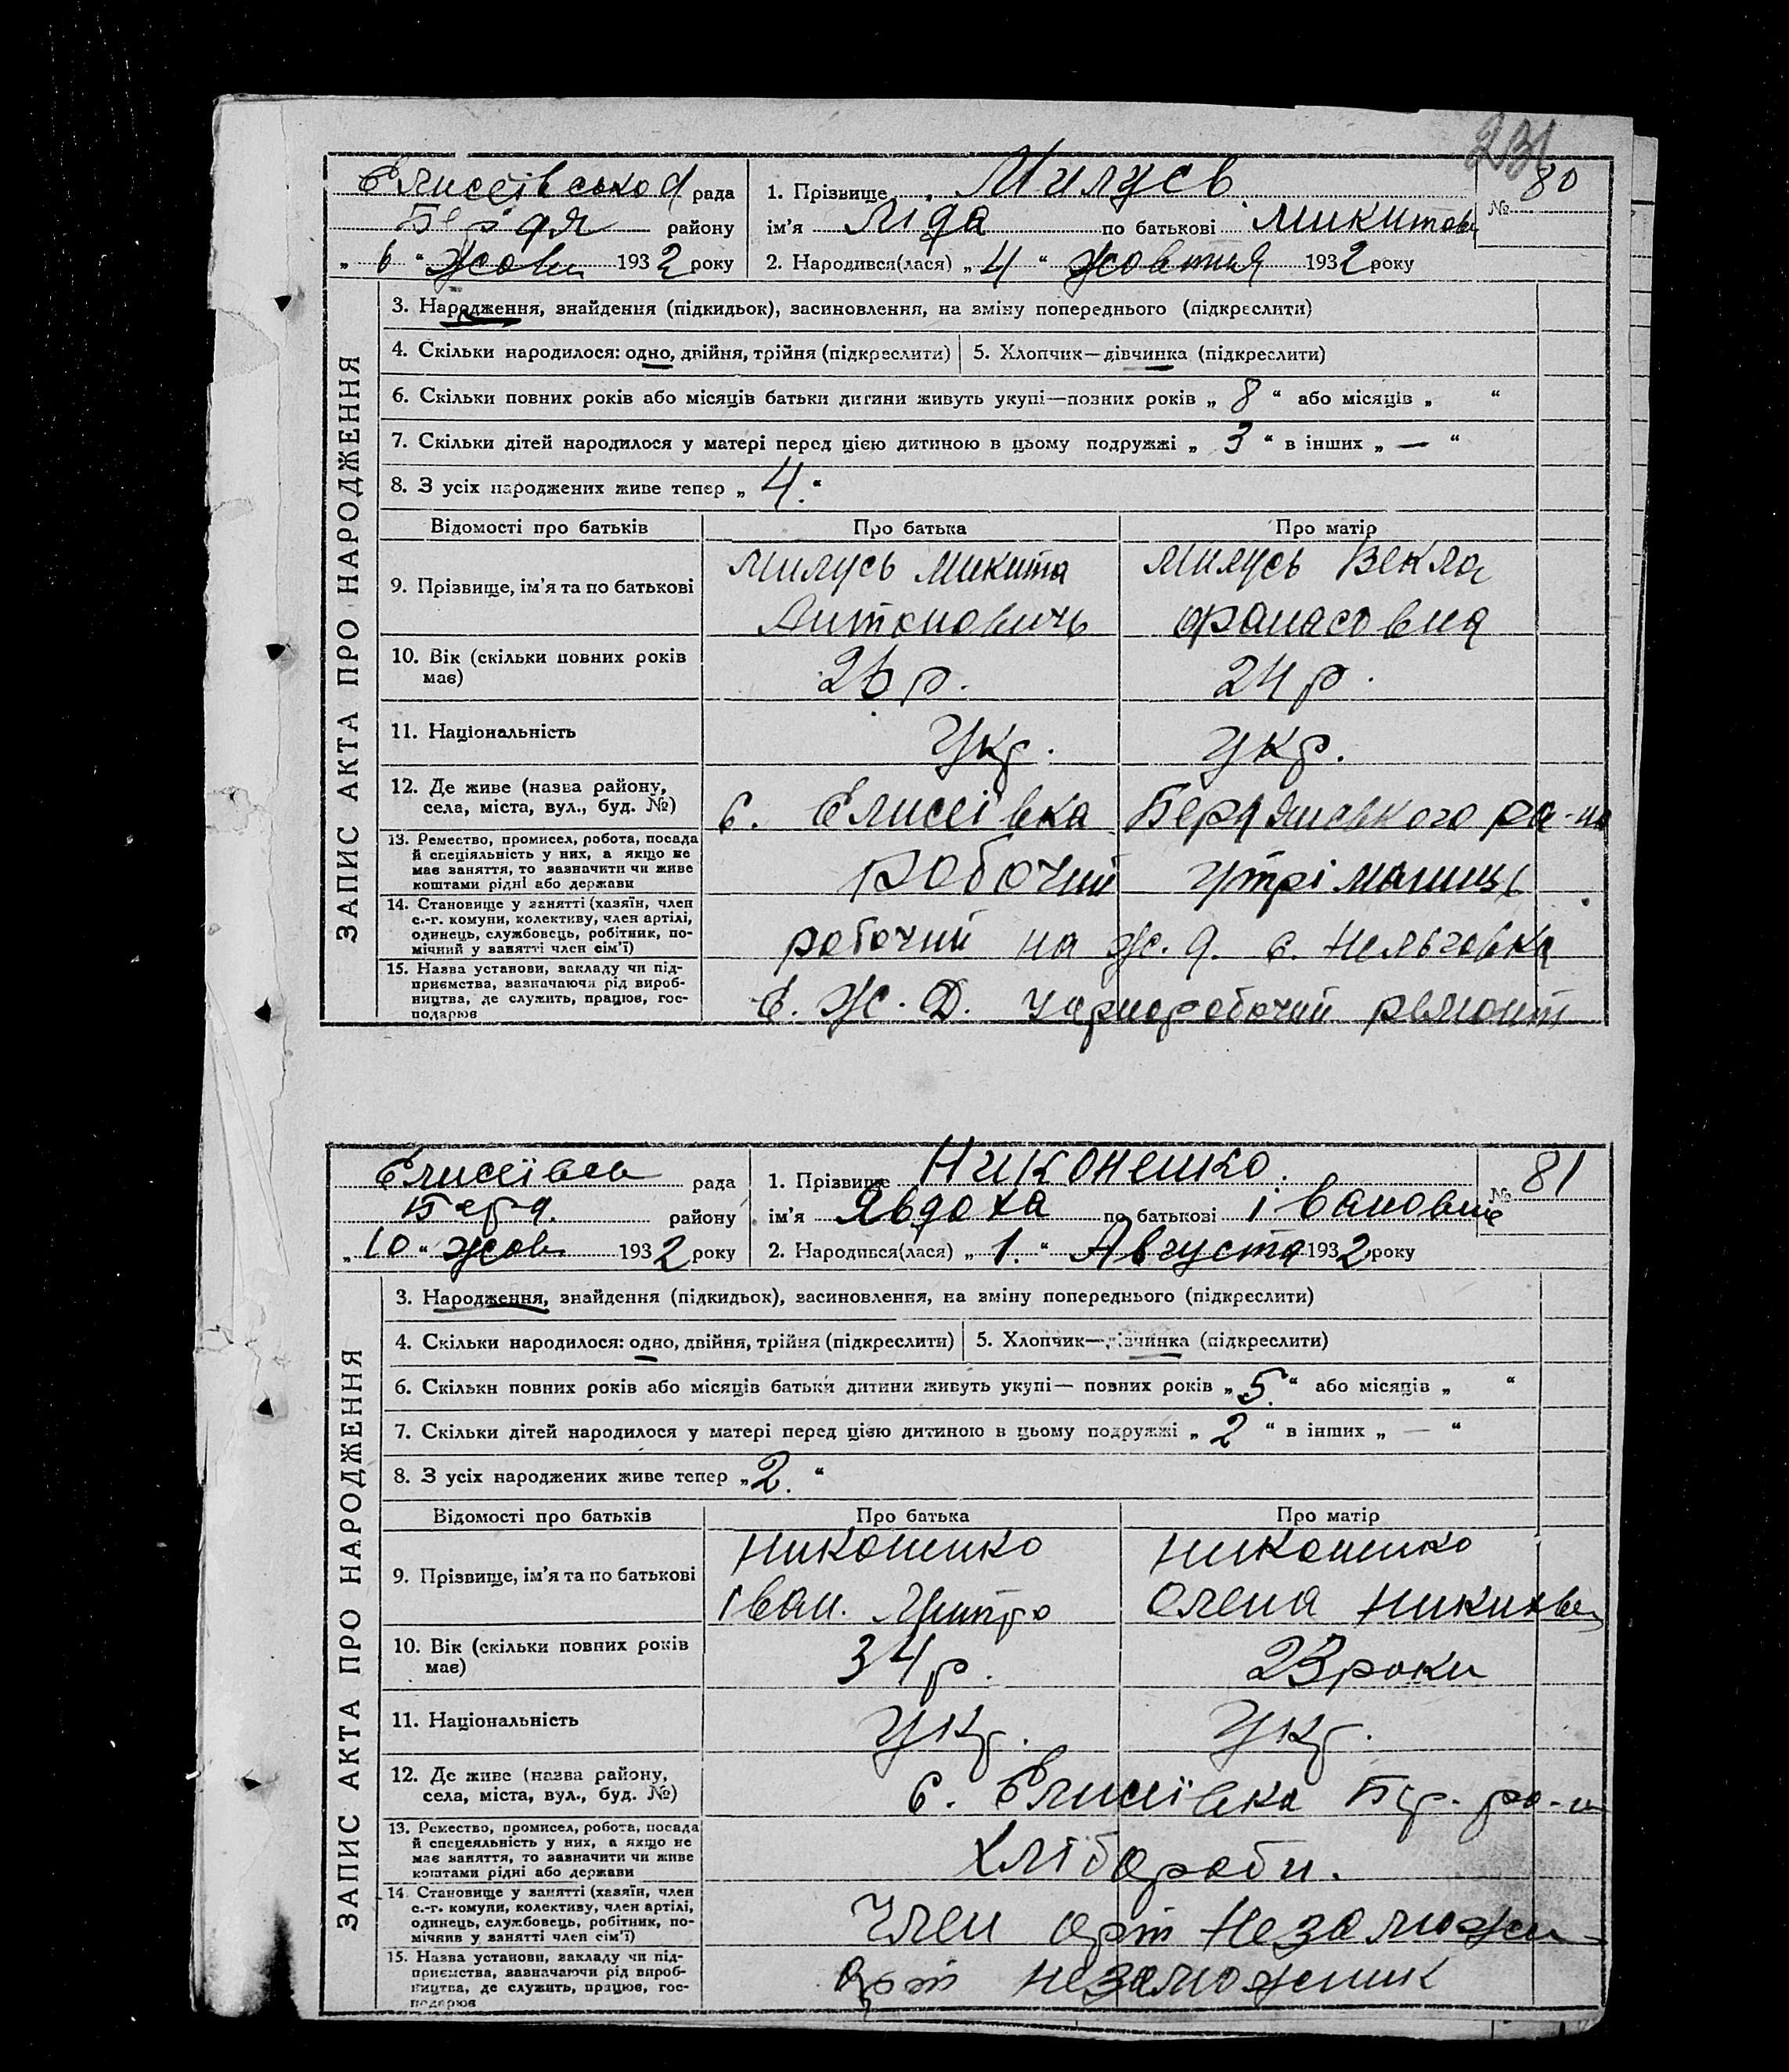 231
Єлисеівської рада
1. Прізвище Милусь
№ 80
Бердя району
ім'я Ліда по батькові Микитов
„ 6 “ жовт 1932 року
2. Народився(лася) „ 4 “ жовтня 1932 року
ЗАПИС АКТА ПРО НАРОДЖЕННЯ
3. Народження, знайдення (підкидьок), засиновлення, на зміну попереднього (підкреслити)
4. Скільки народилося: одно, двійня, трійня (підкреслити)
5. Хлопчик—дівчинка (підкреслити)
6. Скільки повних років або місяців батьки дитини живуть укупі—повних років „ 8 “ або місяців „ “
7. Скільки дітей народилося у матері перед цією дитиною в цьому подружжі „ 3 “ в інших „ — “
8. З усіх народжених живе тепер „ 4. “
Відомості про батьків
Про батька
Про матір
9. Прізвище, ім'я та по батькові
Милусь Микита
Антоновичь
Милусь Векла
Фанасовна
10. Вік (скільки повних років
має)
26 р.
24 р.
11. Національність
Укр.
Укр.
12. Де живе (назва району,
села, міста, вул., буд. №)
с. Єлисеівка Бердянського ра-на
13. Ремество, промисел, робота, посада
й спеціяльність у них, а якщо не
має заняття, то зазначити чи живе
коштами рідні або держави
Робочий
Утріманиця
14. Становище у занятті (хазяїн, член
с.-г. комуни, колективу, член артілі,
одинець, службовець, робітник, по-
мічний у занятті член сім'ї)
робочий на ж. д. с. Нельговка
15. Назва установи, закладу чи під-
приємства, зазначаючи рід вироб-
ництва, де служить, працює, гос-
подарює
Є. Ж. Д. Чорноробочий ремонт
Єлисеївсь рада
1. Прізвище Никоненко.
№ 81
Берд. району
ім'я Явдоха по батькові Івановне
„ 10 “ жовт 1932 року
2. Народився(лася) „ 1. “ Августа 1932 року
ЗАПИС АКТА ПРО НАРОДЖЕННЯ
3. Народження, знайдення (підкидьок), засиновлення, на зміну попереднього (підкреслити)
4. Скільки народилося: одно, двійня, трійня (підкреслити)
5. Хлопчик—дівчинка (підкреслити)
6. Скільки повних років або місяців батьки дитини живуть укупі— повних років „ 5. “ або місяців „ “
7. Скільки дітей народилося у матері перед цією дитиною в цьому подружжі „ 2 “ в інших „ — “
8. З усіх народжених живе тепер „ 2. “
Відомості про батьків
Про батька
Про матір
9. Прізвище, ім'я та по батькові
Никоненко
Іван. Дмитро
Никоненко
Олена
10. Вік (скільки повних років
має)
34 р.
23 роки
11. Національність
Укр.
Укр.
12. Де живе (назва району,
села, міста, вул., буд. №)
с. Єлисеївка Бер. ра-н
13. Ремество, промисел, робота, посада
й спецеяльність у них, а якщо не
має заняття, то зазначити чи живе
коштами рідні або держави
Хлібороби.
14. Становище у занятті (хазяїн, член
с.-г. комуни, колективу, член артілі,
одинець, службовець, робітник, по-
мічнив у занятті член сім'ї)
Член арт Незаможн-
15. Назва установи, закладу чи під-
приємства, зазначаючи рід вироб-
ництва, де служить, працює, гос-
подарює
Арт незаможник